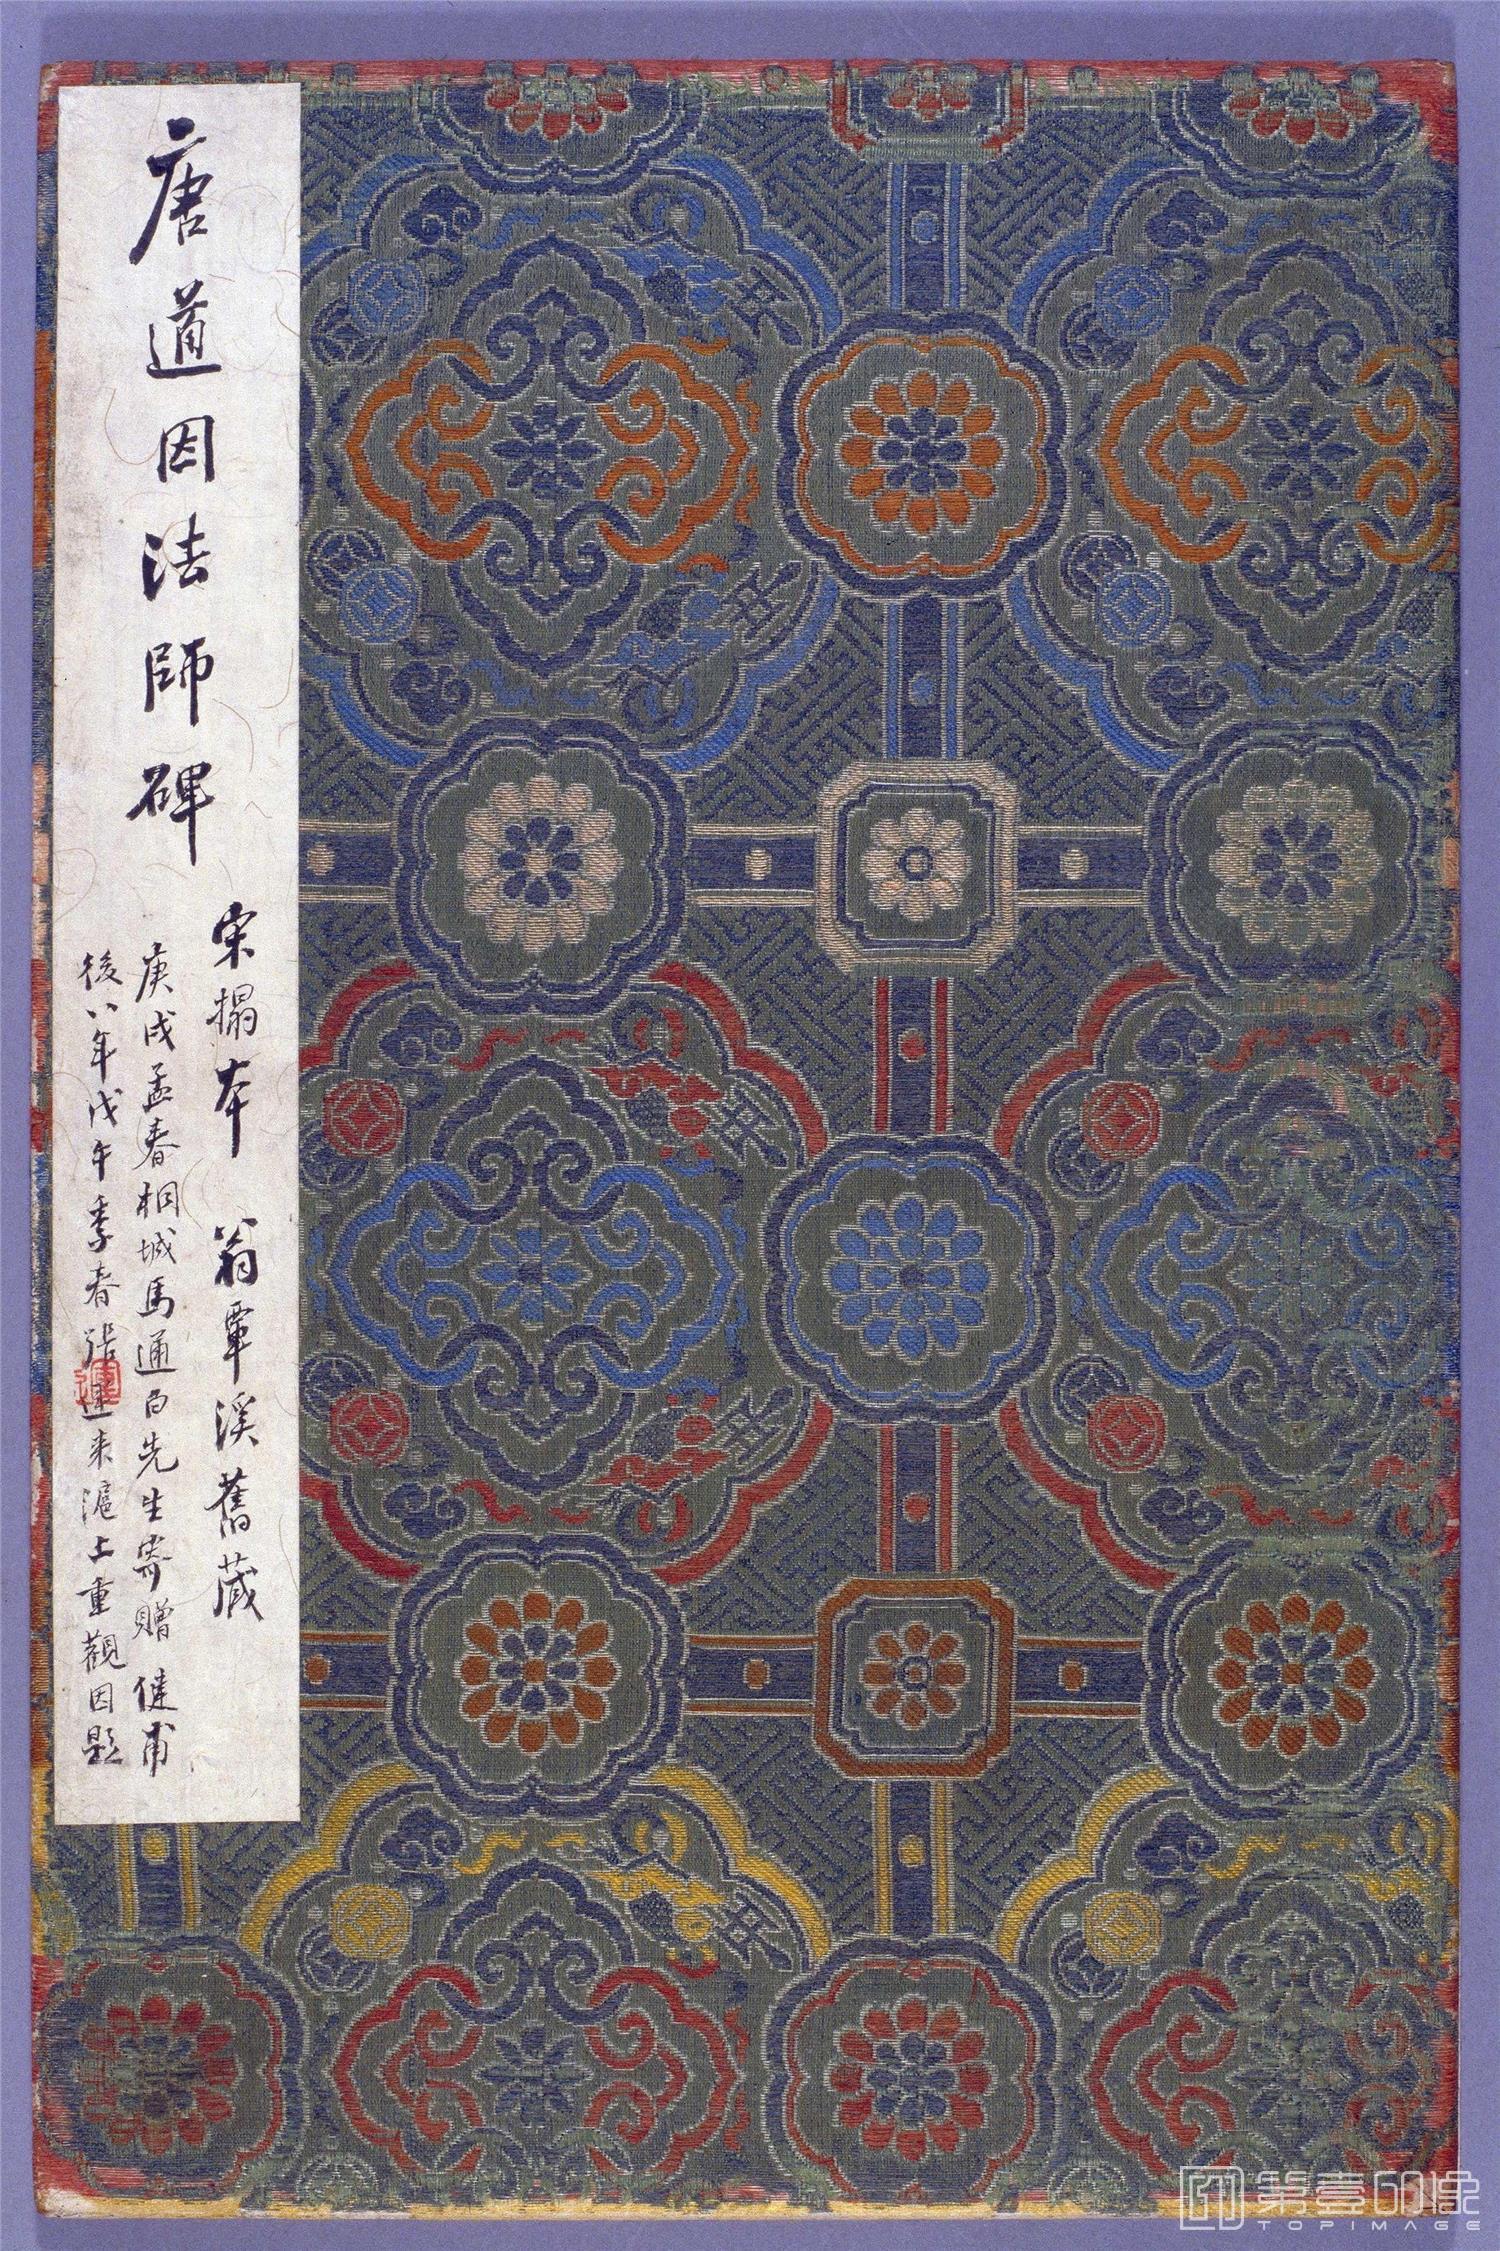 唐道因法師碑
宋搨本 翁覃溪舊藏
庚戌孟春桐城馬通白先生寄贈 健甫
後八年戊午季春張運來滬上重觀因題
第壹印像
TOPIMAGE